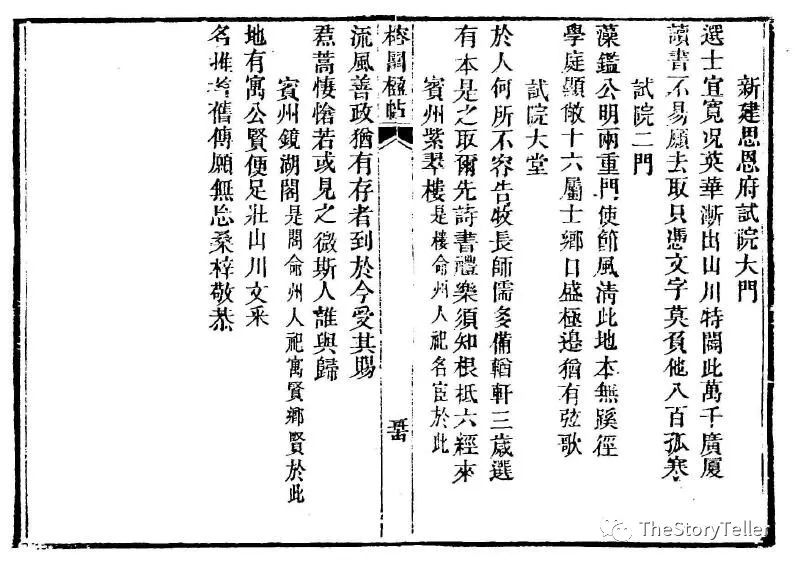 新建思恩府試院大門
選士宜寬况英華漸出山川特闢此萬千廣厦
讀書不易願去取只憑文字莫負他八百孤寒
試院二門
藻鑑公明兩重門使節風清此地本無蹊徑
學庭顯敞十六屬士鄉日盛極邊猶有弦歌
試院大堂
於人何所不容告牧長師儒多備輶軒三歲選
有本是之取爾先詩書禮樂須知根柢六經來
賓州紫翠樓是樓命州人祀名宦於此
榕園楹帖
流風善政猶有存者到於今受其賜
焄蒿悽愴若或見之微斯人誰與歸
賓州鏡湖閣是閣命州人祀寓賢鄉賢於此
地有寓公賢便足壯山川文采
名推耆舊傳願無忘桑梓敬恭
TheStoryTeller